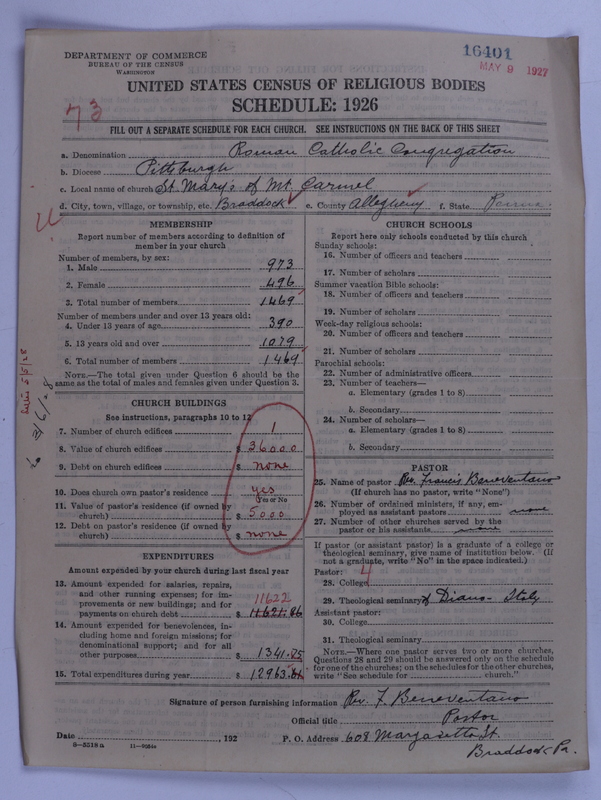 DEPARTMENT OF COMMERCE
BUREAU OF THE CENSUS
WASHINGTON
16401
MAY 9 1927
UNITED STATES CENSUS OF RELIGIOUS BODIES
SCHEDULE: 1926
73
FILL OUT A SEPARATE SCHEDULE FOR EACH CHURCH. SEE INSTRUCTIONS ON THE BACK OF THIS SHEET
a. Denomination Roman Catholic Congregation
b. Diocese Pittsburgh
c. Local name of church St. Mary's of Mt. Carmel
d. City, town, village, or township, etc. Braddock e. County Allegheny f. State Penna.
MEMBERSHIP
Report number of members according to definition of
member in your church
Number of members, by sex:
1. Male 973
2. Female 496
3. Total number of members 1469
Number of members under and over 13 years old:
4. Under 13 years of age 390
5. 13 years old and over 1079
6. Total number of members 1469
NOTE.—The total given under Question 6 should be the
same as the total of males and females given under Question 3.
CHURCH BUILDINGS
See instructions, paragraphs 10 to 12
7. Number of church edifices 1
8. Value of church edifices $ 36000
9. Debt on church edifices $ none
10. Does church own pastor's residence yes
Yes or No
11. Value of pastor's residence (if owned by
church) $ 5000
12. Debt on pastor's residence (if owned by
church) $ none
EXPENDITURES
Amount expended by your church during last fiscal year
13. Amount expended for salaries, repairs,
and other running expenses; for im-
provements or new buildings; and for
payments on church debt $ 11621.86
11622
14. Amount expended for benevolences, in-
cluding home and foreign missions; for
denominational support; and for all
other purposes $ 1341.75
15. Total expenditures during year $ 12963.61
CHURCH SCHOOLS
Report here only schools conducted by this church
Sunday schools:
16. Number of officers and teachers
17. Number of scholars
Summer vacation Bible schools:
18. Number of officers and teachers
19. Number of scholars
Week-day religious schools:
20. Number of officers and teachers
21. Number of scholars
Parochial schools:
22. Number of administrative officers
23. Number of teachers—
a. Elementary (grades 1 to 8)
b. Secondary
24. Number of scholars—
a. Elementary (grades 1 to 8)
b. Secondary
PASTOR
25. Name of pastor Rev. Francis Beneventano
(If church has no pastor, write "None")
26. Number of ordained ministers, if any, em-
ployed as assistant pastors none
27. Number of other churches served by the
pastor or his assistants none
If pastor (or assistant pastor) is a graduate of a college or
theological seminary, give name of institution below. (If
not a graduate, write "No" in the space indicated.)
Pastor: 4
28. College
29. Theological seminary of Diano - Italy
Assistant pastor:
30. College
31. Theological seminary
NOTE.—Where one pastor serves two or more churches,
Questions 28 and 29 should be answered only on the schedule
for one of the churches; on the schedules for the other churches,
write "See schedule for church."
Signature of person furnishing information Rev. F. Beneventano
Official title Pastor
Date , 192 P. O. Address 608 Margaretta St.
Braddock Pa.
S-5218a 11-9084e